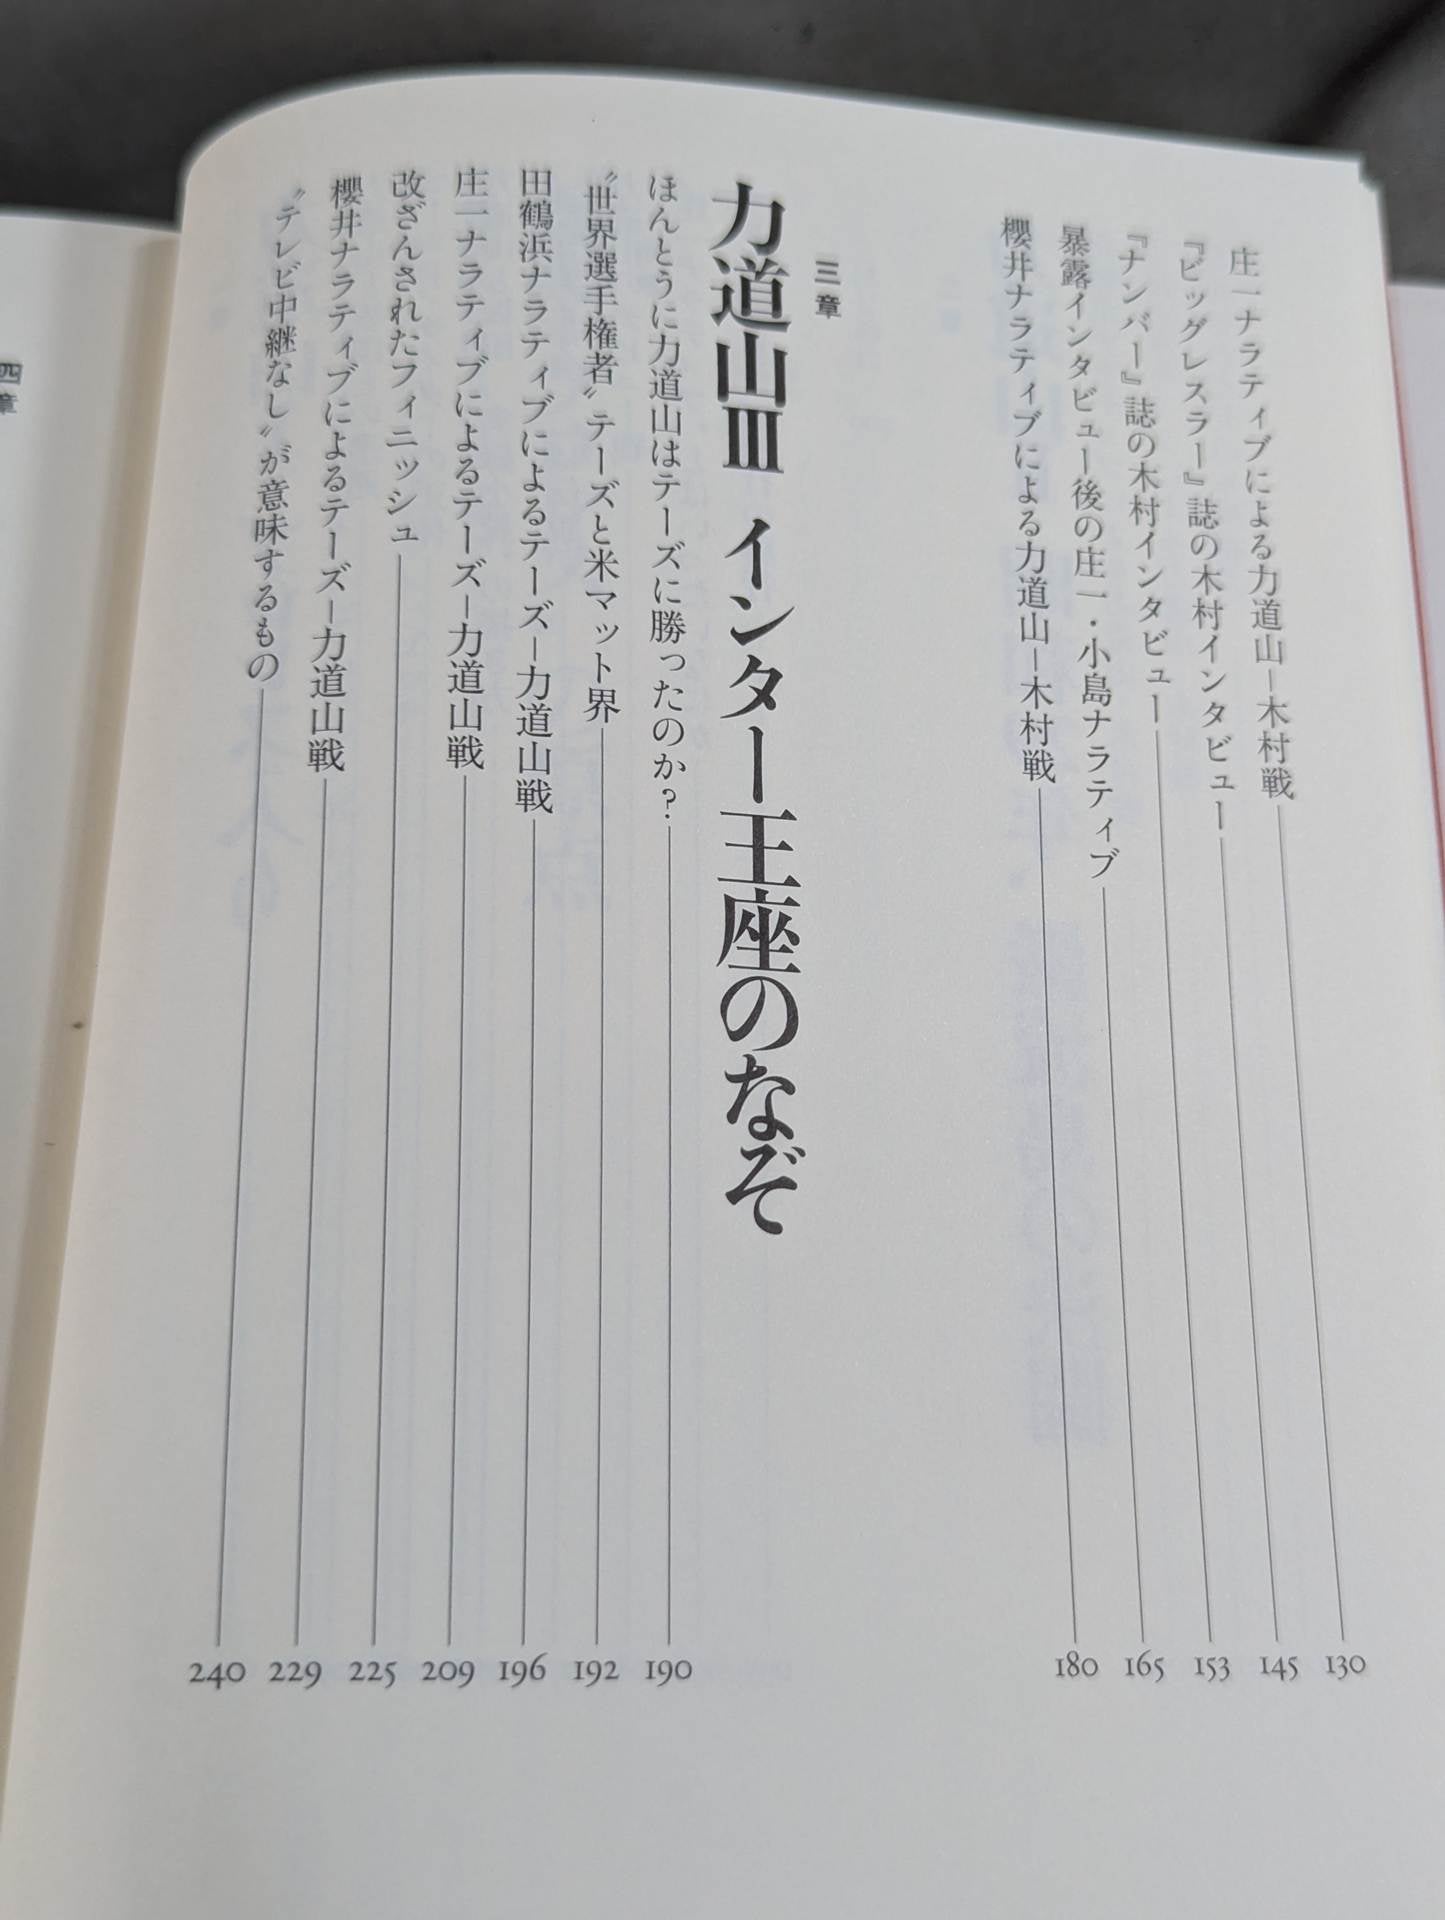 庄一ナラティブによる力道山―木村戦 130
『ビッグレスラー』誌の木村インタビュー 145
『ナンバー』誌の木村インタビュー 153
暴露インタビュー後の庄一・小島ナラティブ 165
櫻井ナラティブによる力道山―木村戦 180
三章
力道山Ⅲ インター王座のなぞ
ほんとうに力道山はテーズに勝ったのか? 190
〝世界選手権者〟テーズと米マット界 192
田鶴浜ナラティブによるテーズ―力道山戦 196
庄一ナラティブによるテーズ―力道山戦 209
改ざんされたフィニッシュ 225
櫻井ナラティブによるテーズ―力道山戦 229
〝テレビ中継なし〟が意味するもの 240
四章